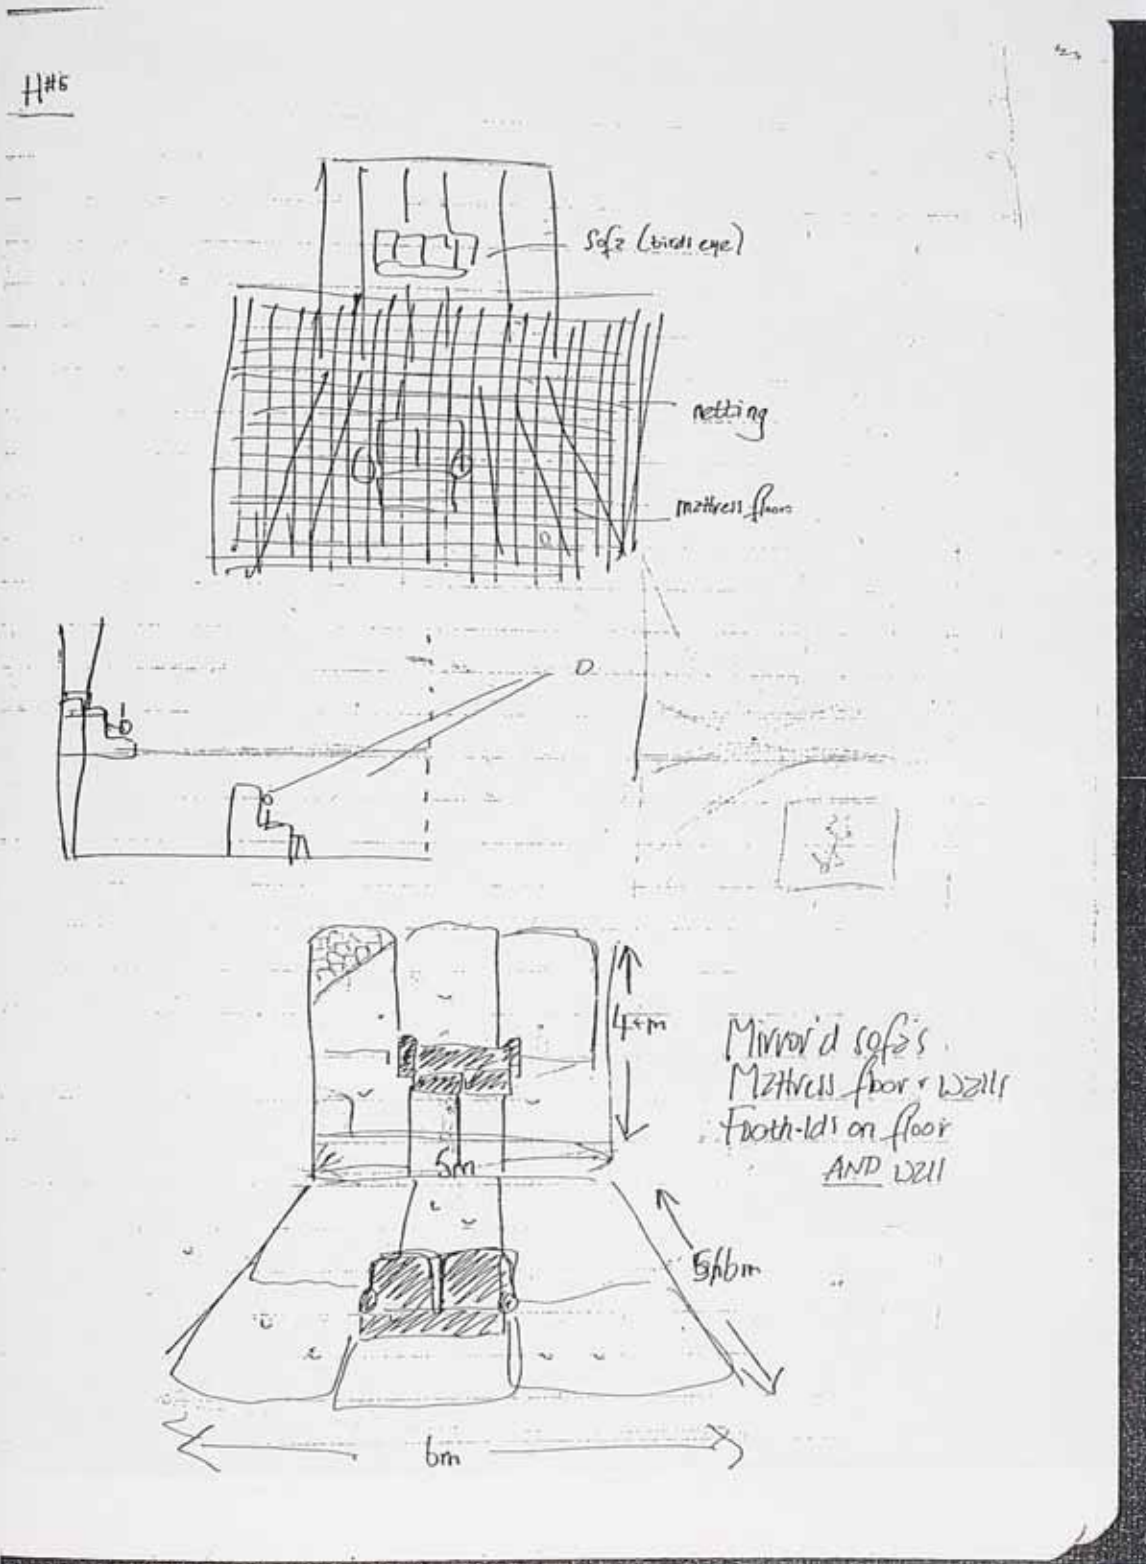 H#5
Sofa (birds eye)
netting
mattress floor
4+m
Mirror'd sofas.
Mattress floor + walls
Footholds on floor
AND wall
5m
5/6m
6m